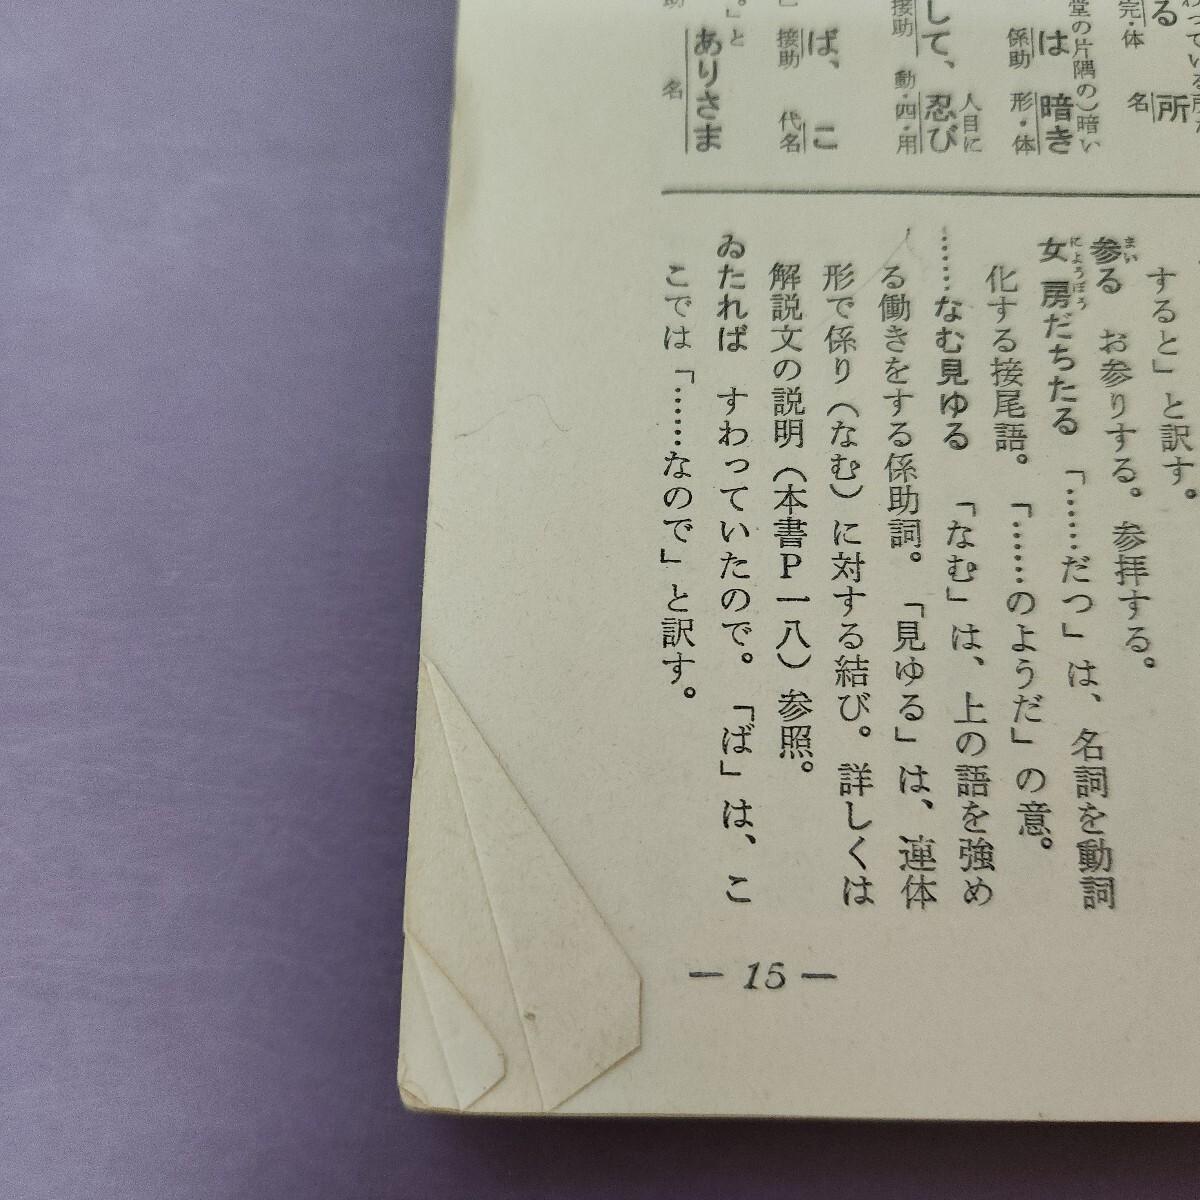 わっている所
る 所
完・体 名
堂の片隅の)暗い
は 暗き
係助 形・体
人目に
して、 忍び
接助 動・四・用
ば、 こ
接助 代名
。」と
ありさま
助 名
すると」と訳す。
参る お参りする。参拝する。
まい
女房だちたる 「……だつ」は、名詞を動詞
にようぼう
化する接尾語。「……のようだ」の意。
……なむ見ゆる 「なむ」は、上の語を強め
る働きをする係助詞。「見ゆる」は、連体
形で係り(なむ)に対する結び。詳しくは
解説文の説明(本書P一八)参照。
ゐたれば すわっていたので。「ば」は、こ
こでは「……なので」と訳す。
— 15 —